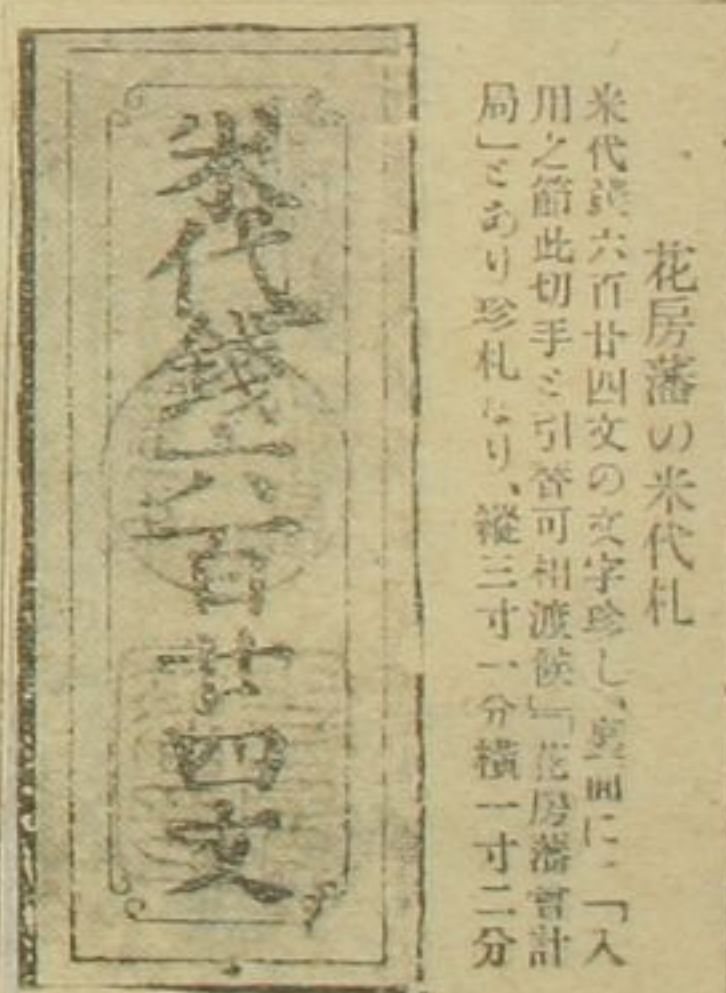 花房藩の米代札
米代錢六百廿四文の文字珍し、裏面に「入
用之節此切手ミ引替可相渡候」「花房藩會計
局」とあり珍札なり、縱三寸一分橫一寸二分
米代錢六百廿四文